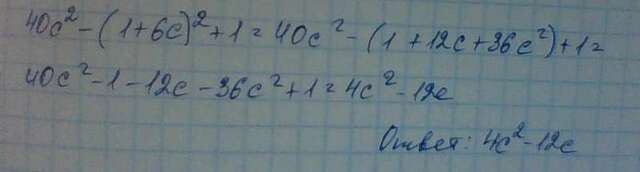 40c² - (1+6c)² + 1 = 40c² - (1 + 12c + 36c²) + 1 =
40c² - 1 - 12c - 36c² + 1 = 4c² - 12c
Ответ: 4c² - 12c